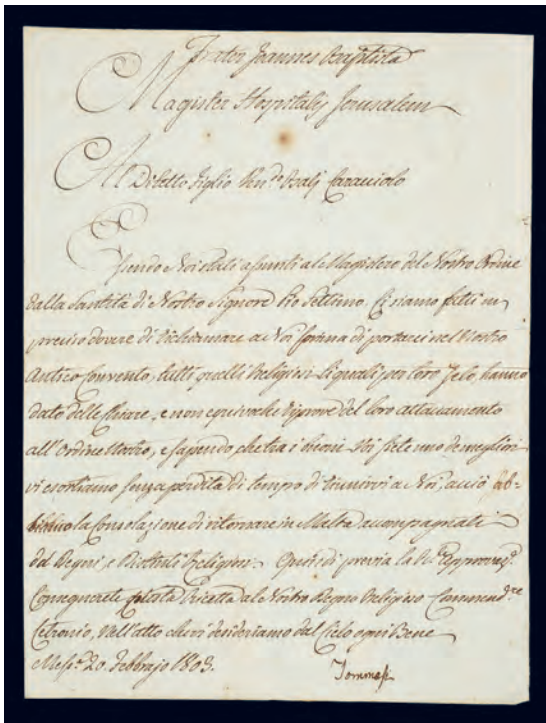 Frater Joannes Baptista
Magister Hospitalis Jerusalem
Al Diletto Figlio Ven.do Balj Caracciolo
Essendo Noi stati assunti al Magistero del Nostro Ordine
dalla Santità di Nostro Signore Pio Settimo. Ci siamo fatti un
preciso dovere di richiamare a Noi prima di portarci nel Nostro
Antico Convento, tutti quelli Religiosi li quali per loro zelo, hanno
dato delle chiare, e non equivoche riprove del loro attaccamento
all'Ordine Nostro, e sapendo, che tra i buoni Voi siete uno de migliori
vi esortiamo senza perdita di tempo di riunirvi a Noi, acciò ab-
la Consolazione di ritornare in Malta accompagnati
da Degni, e Religiosi. Quindi previa la
Consegnarete Ricetta al Nostro Degno Religioso Commend.re
nell'atto che vi desideriamo dal Cielo ogni Bene
Mess.a 20 Febbrajo 1803.
Tommasi